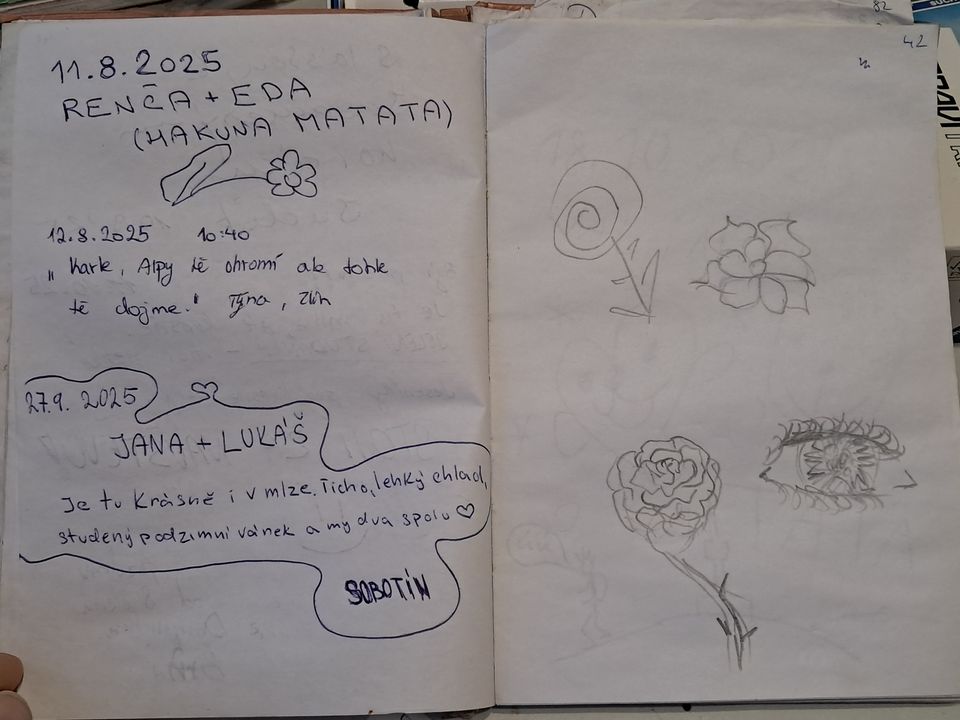 11.8.2025
RENČA + EDA
(HAKUNA MATATA)
12.8.2025 10:40
„Karle, Alpy tě ohromí ale tohle
tě dojme." Týna, Zlín
27.9. 2025
JANA + LUKÁŠ
Je tu krásně i v mlze. Ticho, lehký chlad,
studený podzimní vánek a my dva spolu ♡
SOBOTÍN
42